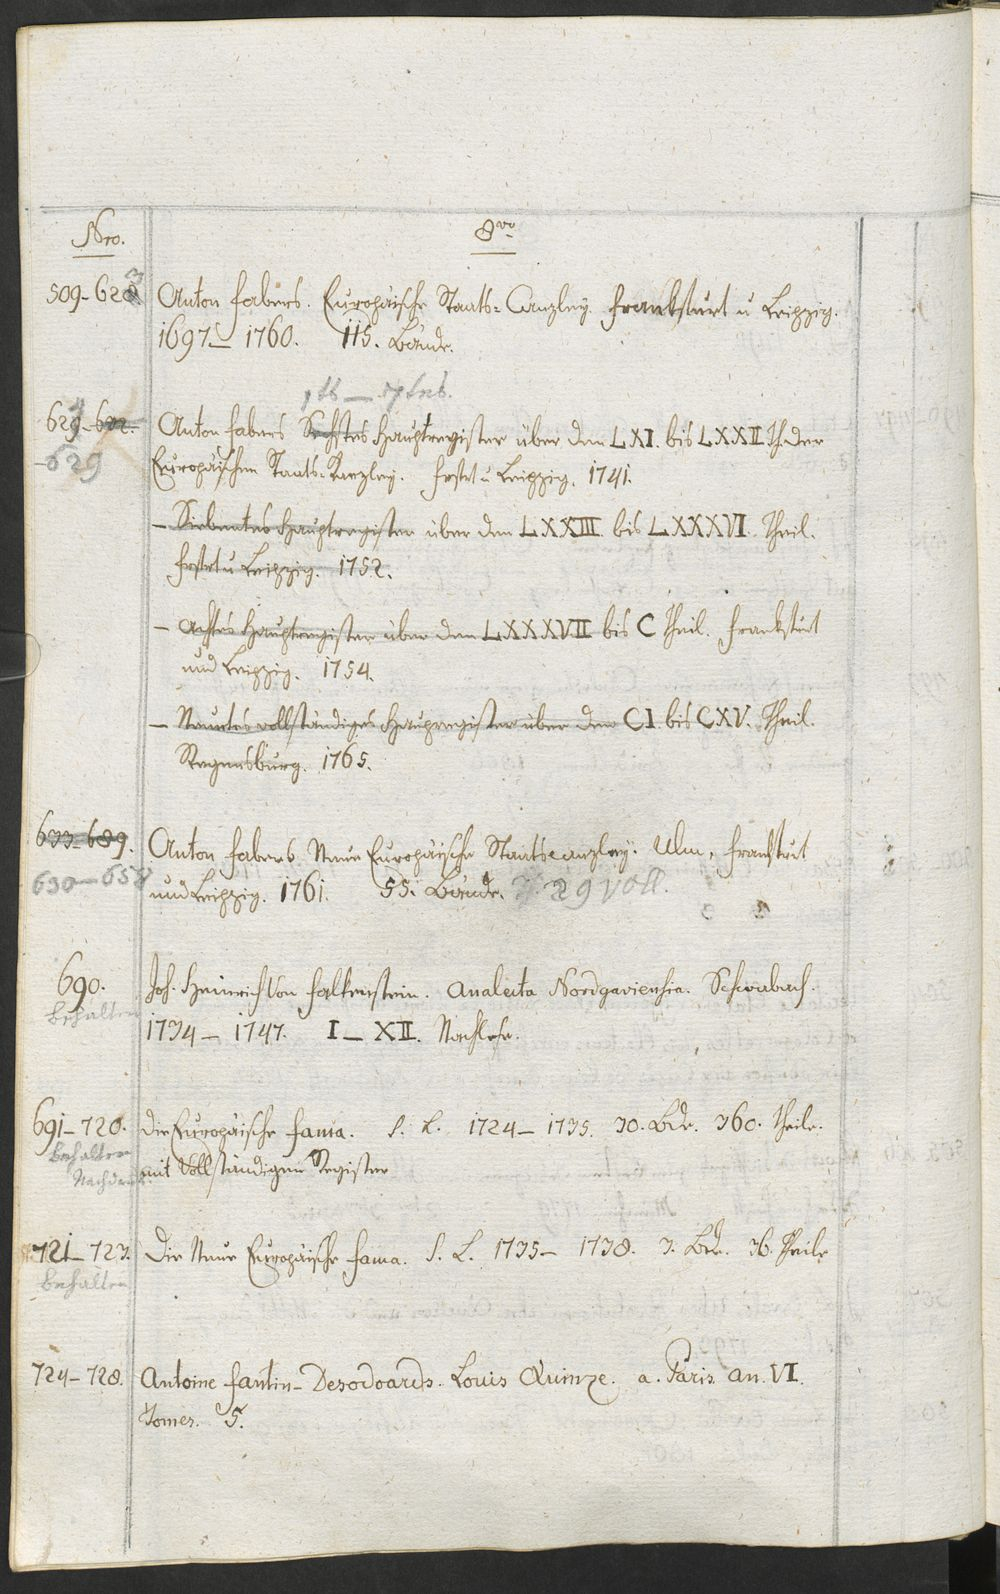 Nro. 8vo
509-623 Anton Fabers. Europäische Staats-Canzley. Frankfurt u Leipzig.
1697 – 1760. 115. Bände.
1tes — 9ties.
624-632. Anton Fabers Sechstes Hauptregister über den LXI. bis LXXII Th. der
-629 Europäischen Staats-Kanzley. Frfrt u Leipzig. 1741.
– Siebentes Hauptregister über den LXXIII bis LXXXVI. Theil.
Frfrt u Leipzig. 1752.
– Achtes Hauptregister über den LXXXVII bis C Theil. Frankfurt
und Leipzig. 1754.
– Neuntes vollständiges Haupregister über den CI. bis CXV. Theil.
Regensburg. 1765.
633-689. Anton Fabers Neue Europäische Staatscanzley. Ulm, Frankfurt
630-658 und Leipzig. 1761. 55. Bände. 29 voll.
690. Joh. Heinrich Von Falkenstein. Analecta Nordgaviensia. Schwabach.
behalten 1734 – 1747. I – XII. Nachlese.
691-720. Die Europäische Fama. S. L. 1724 – 1735. 30. Bde. 360. Theile.
behalten mit Vollständigen Register
721-723. Die Neue Europäische Fama. S. L. 1735 – 1738. 3. Bde. 36. Theile
behalten
724-728. Antoine Fantin-Desodoards. Louis Quinze. a. Paris an. VI.
Tomes. 5.